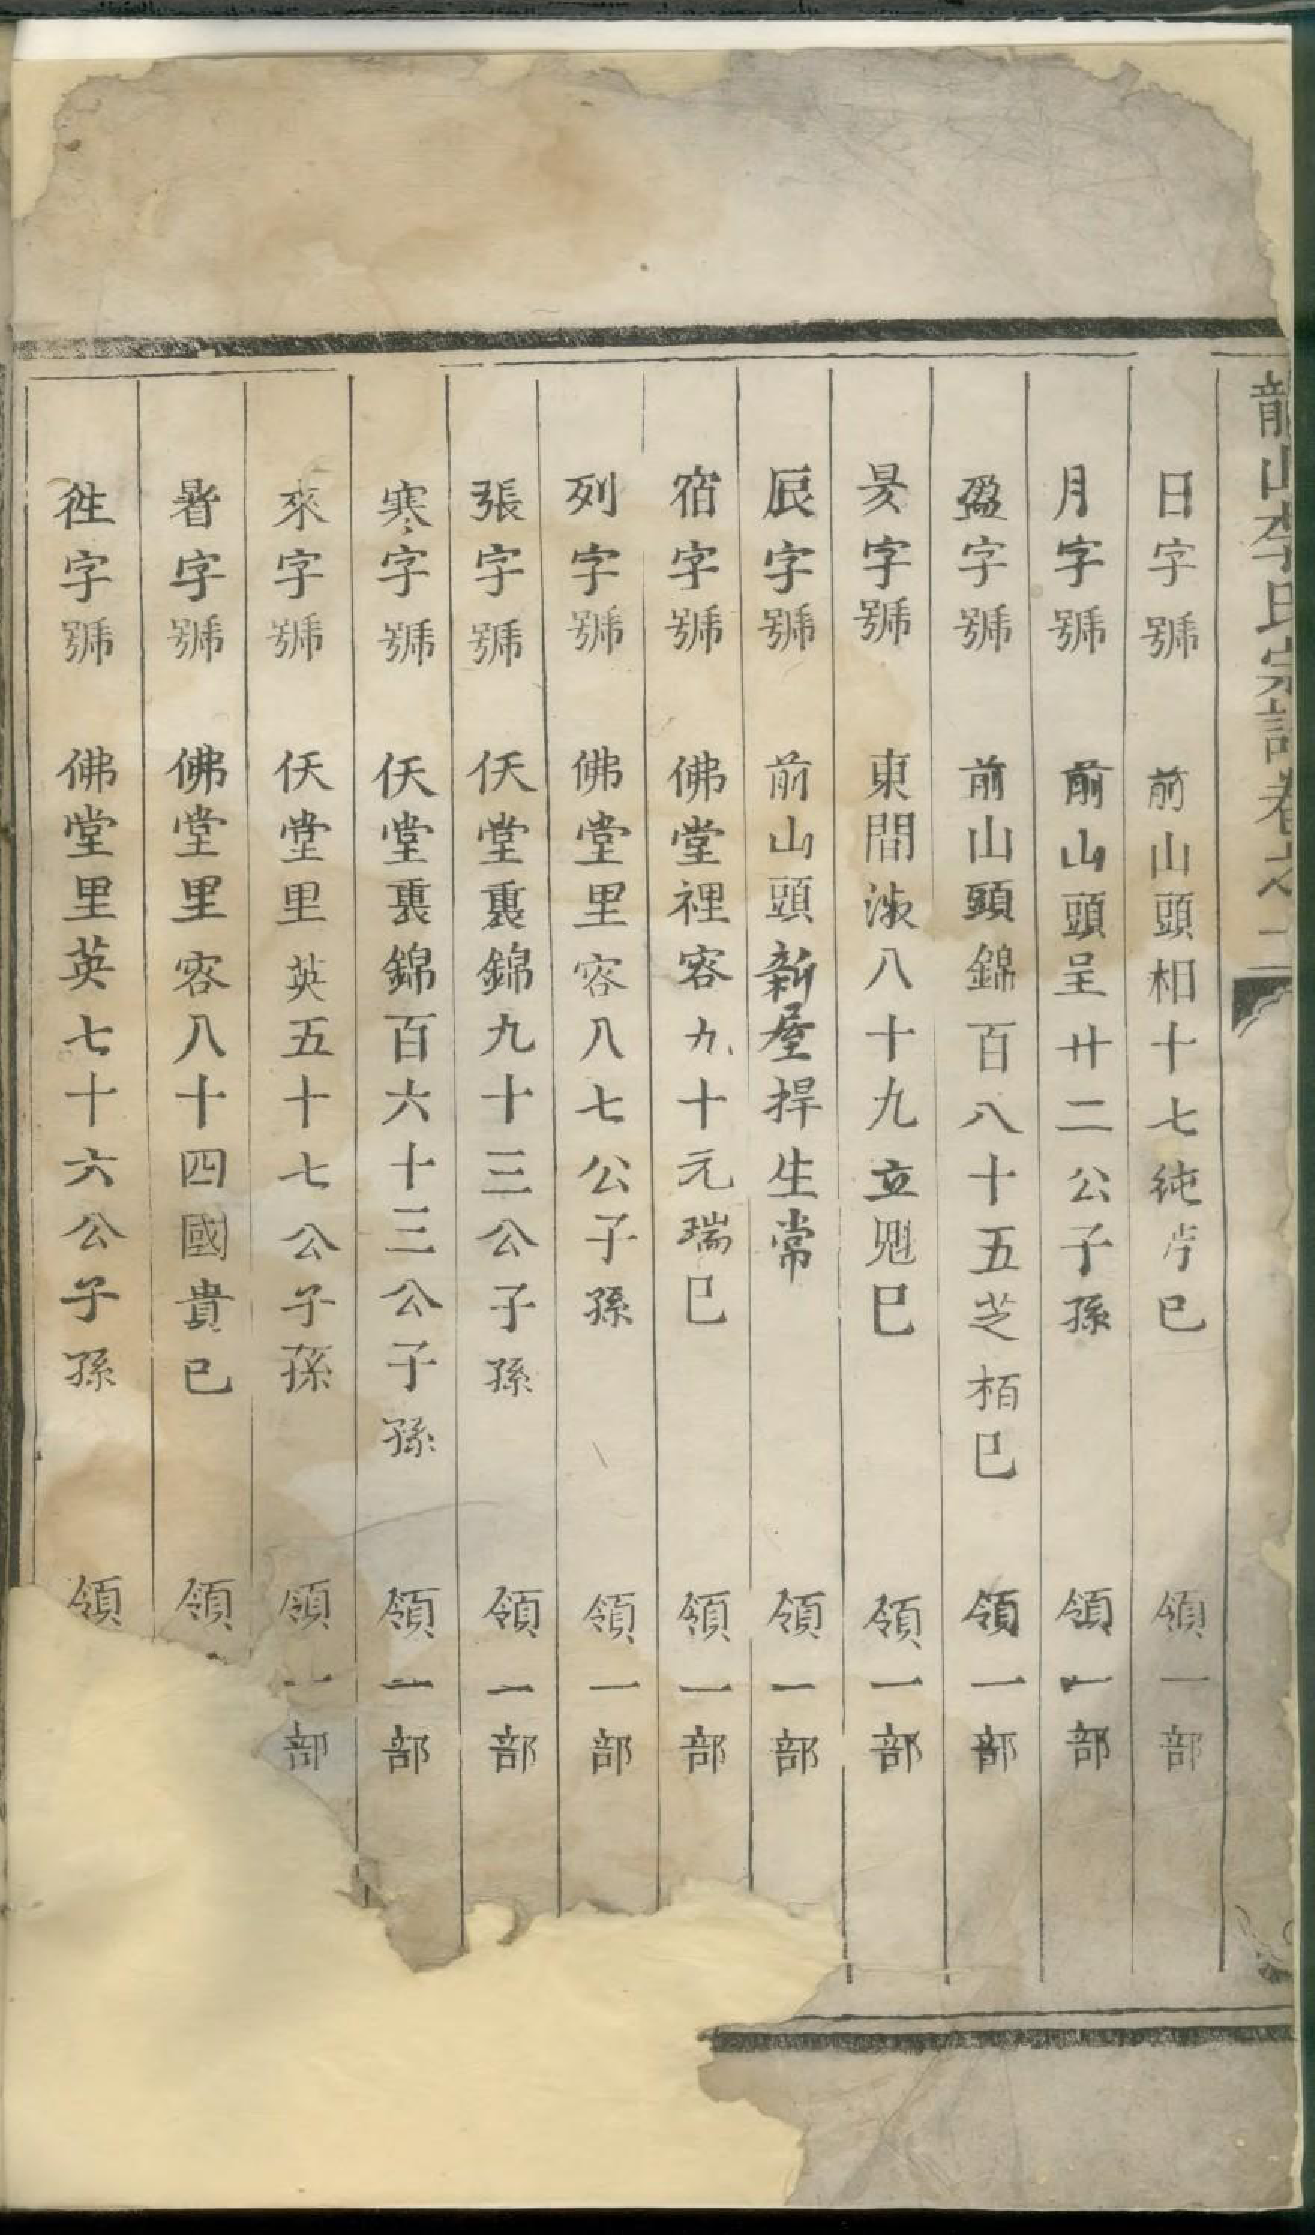 龍山李氏宗譜卷之二
日字號 前山頭相十七純 巳 領一部
月字號 前山頭呈廿二公子孫 領一部
盈字號 前山頭錦百八十五芝栢巳 領一部
昃字號 東間淑八十九立魁巳 領一部
辰字號 前山頭新屋捍生常 領一部
宿字號 佛堂裡容九十元瑞巳 領一部
列字號 佛堂里容八七公子孫 領一部
張字號 仸堂裏錦九十三公子孫 領一部
寒字號 仸堂裏錦百六十三公子孫 領一部
來字號 仸堂里英五十七公子孫 領一部
暑字號 佛堂里容八十四國貴已 領
徃字號 佛堂里英七十六公子孫 領